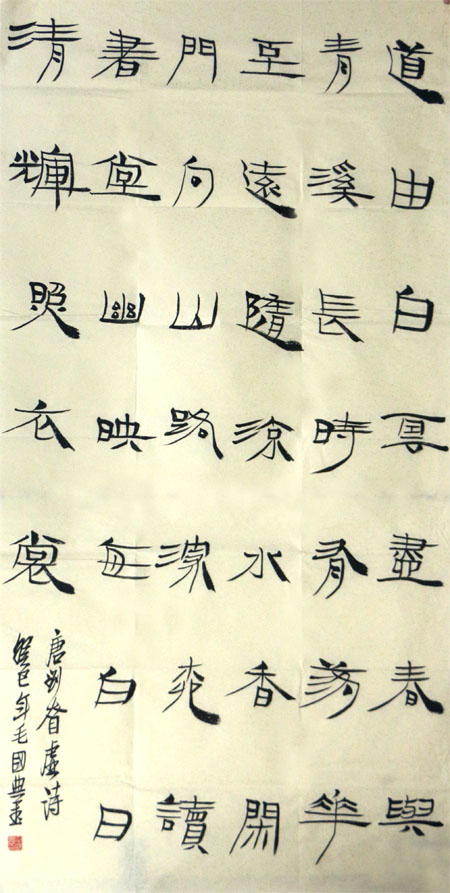 道由白雲盡春與
青溪長時有落花
至遠隨流水香閑
門向山路深柳讀
書堂幽映每白日
清輝照衣裳
唐刘眘虛詩
癸巳年毛國典書